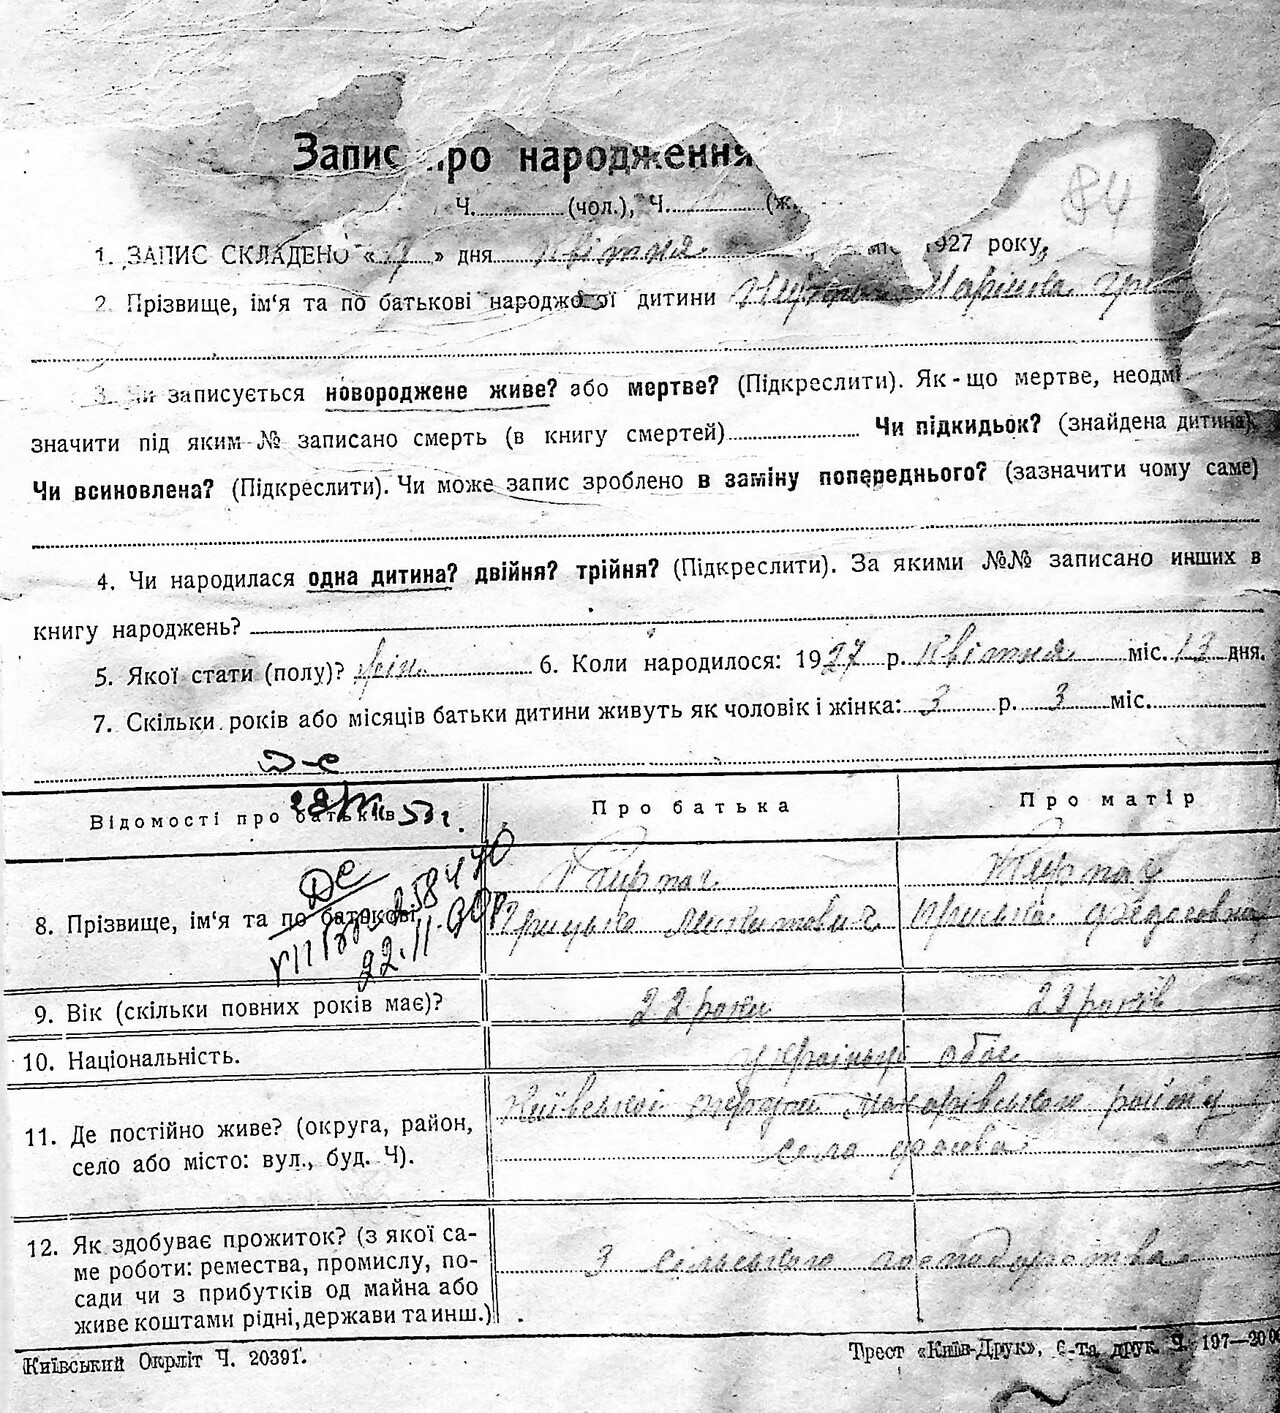 Запис про народження
Ч. (чол.), Ч. (ж.
84
1. ЗАПИС СКЛАДЕНО « » дня квітня 1927 року,
2. Прізвище, ім'я та по батькові народженої дитини
3. Чи записується новороджене живе? або мертве? (Підкреслити). Як-що мертве, неодмі
значити під яким № записано смерть (в книгу смертей) Чи підкидьок? (знайдена дитина)
Чи всиновлена? (Підкреслити). Чи може запис зроблено в заміну попереднього? (зазначити чому саме)
4. Чи народилася одна дитина? двійня? трійня? (Підкреслити). За якими №№ записано инших в
книгу народжень?
5. Якої стати (полу)? жін. 6. Коли народилося: 1927 р. квітня міс. 13 дня.
7. Скільки років або місяців батьки дитини живуть як чоловік і жінка: 3 р. 3 міс.
Відомості про батьків Про батька Про матір
8. Прізвище, ім'я та по батькові
22.11.
9. Вік (скільки повних років має)? 22 роки 22 років
10. Національність. українці обоє
11. Де постійно живе? (округа, район, Київської округи Макарівського району
село або місто: вул., буд. Ч). села
12. Як здобуває прожиток? (з якої са-
ме роботи: ремества, промислу, по- З сільського господарства
сади чи з прибутків од майна або
живе коштами рідні, держави та инш.)
Київський Окрліт Ч. 20391. Трест «Київ-Друк», 6-та друк. Ч. 197—20